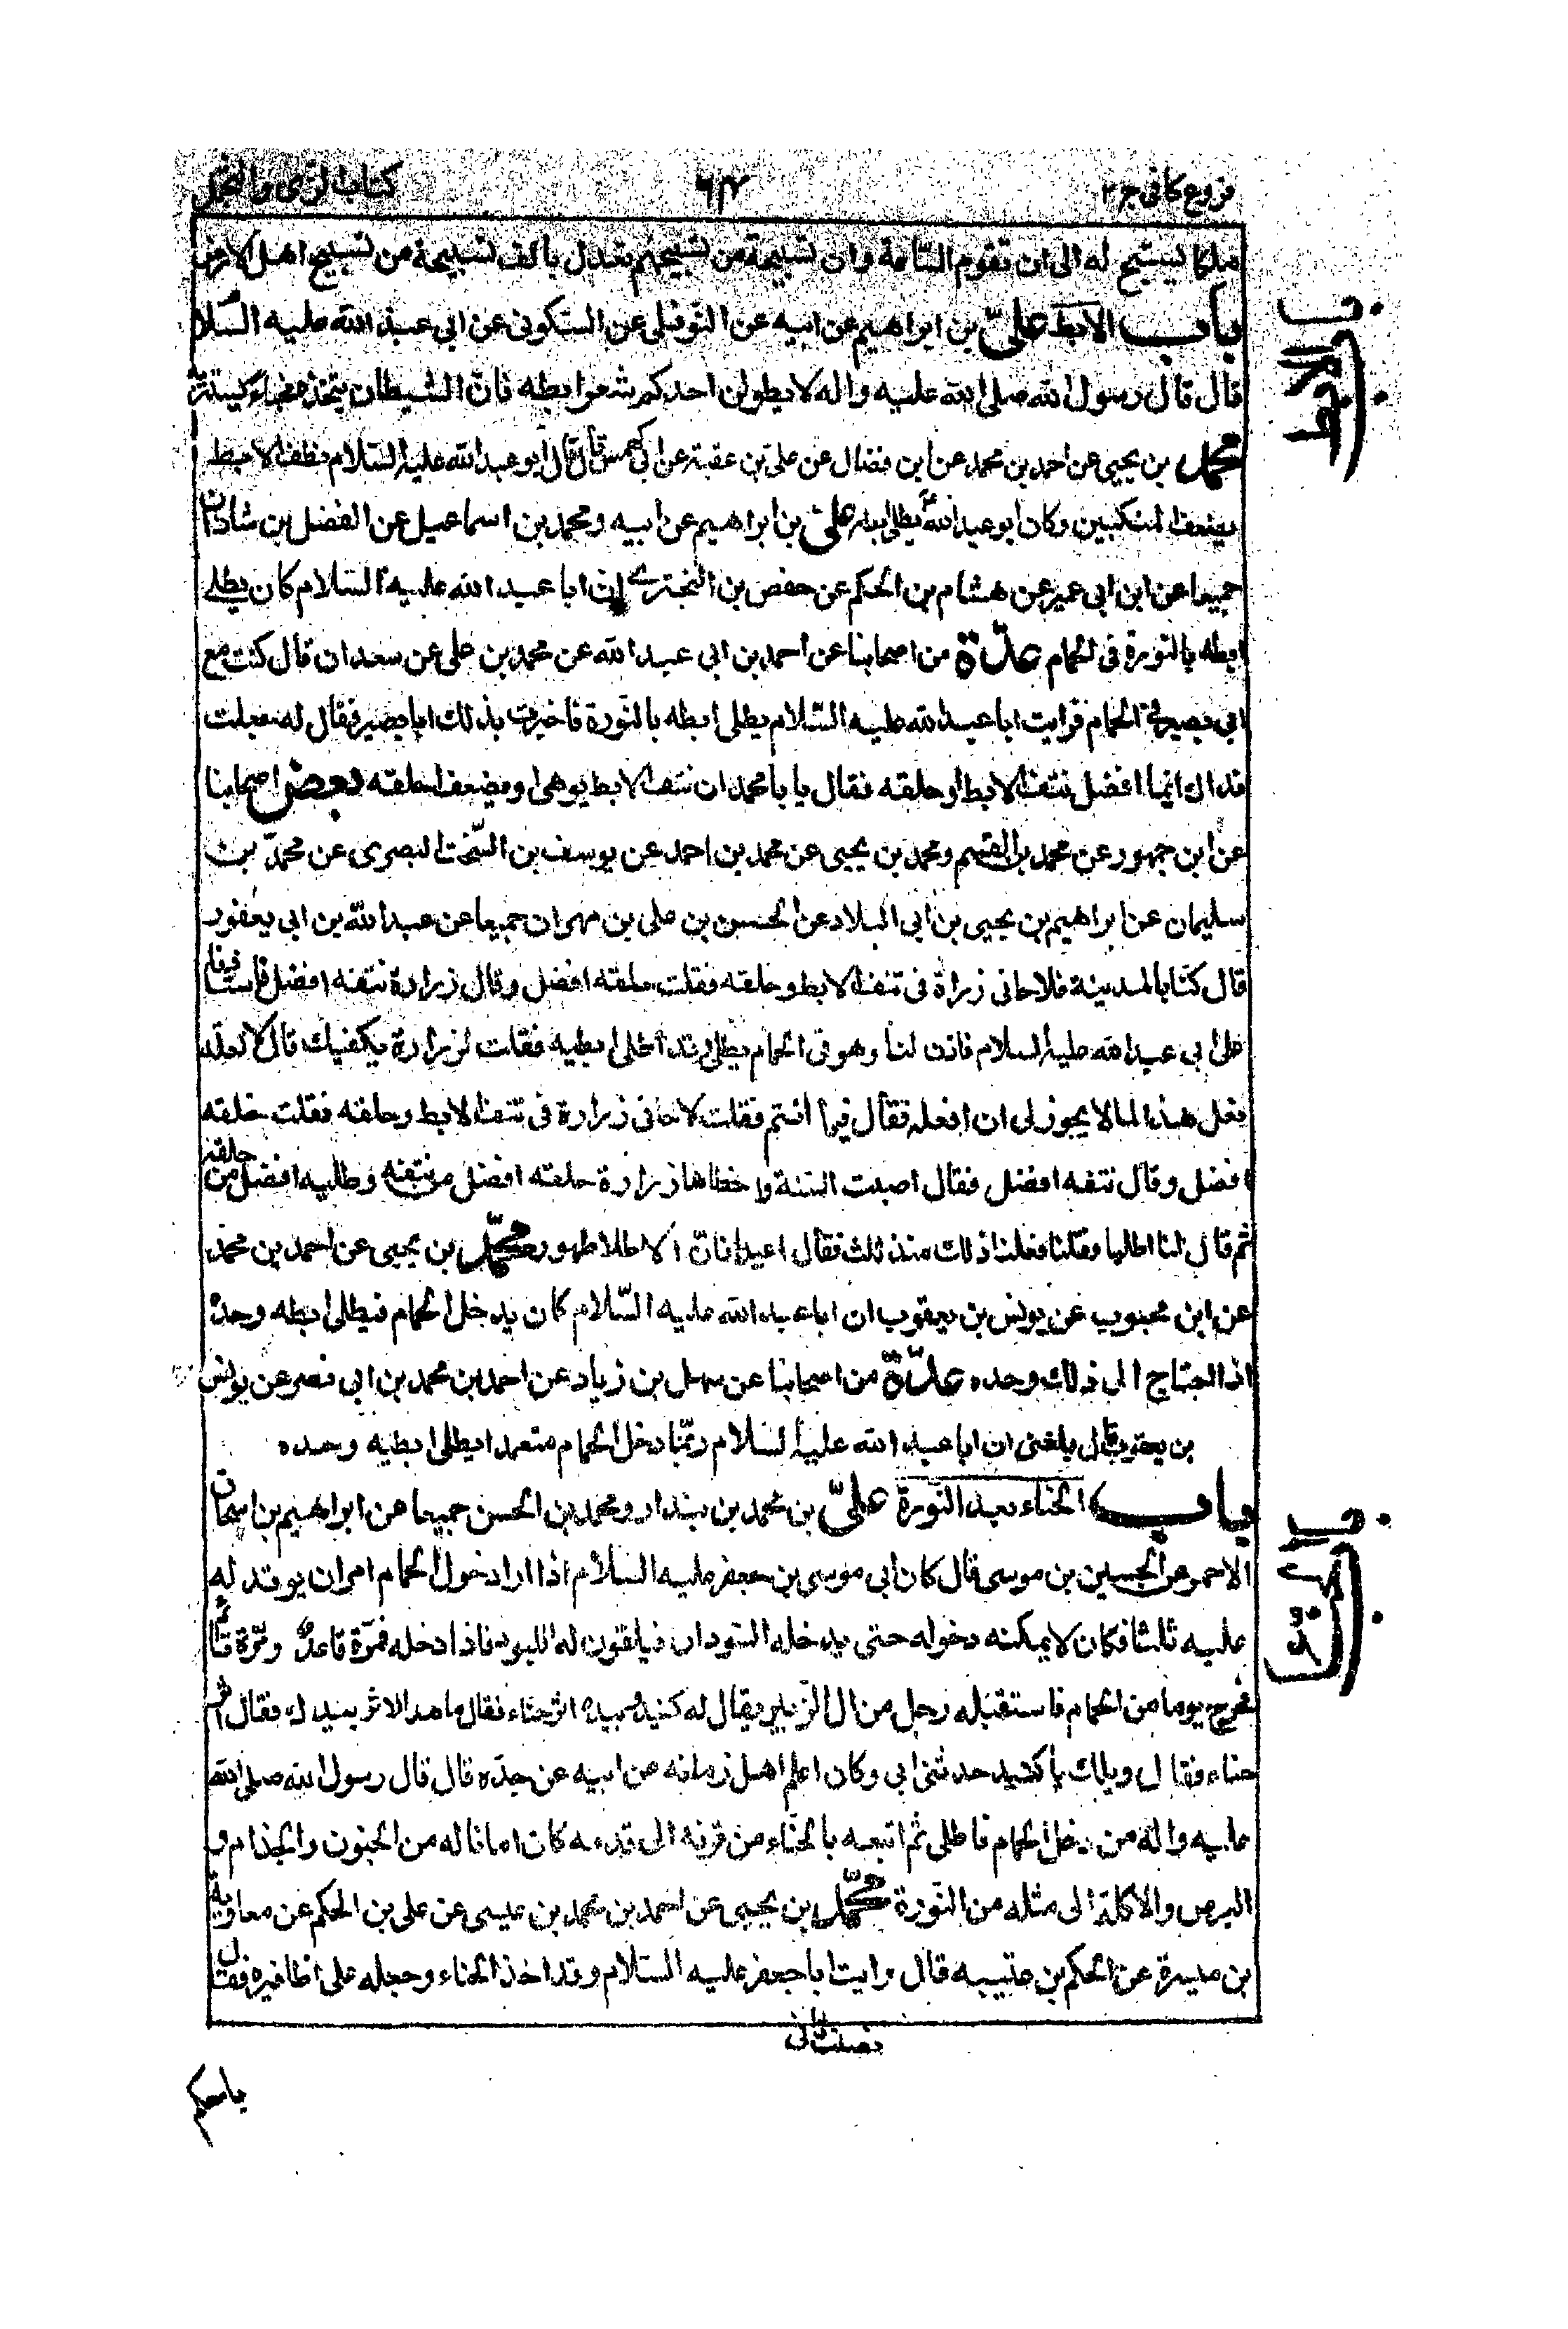 فروع كافي ج ٢
٦٤
كتاب الزى والتجمل
ملكا يسبح له الى ان تقوم الساعة وان تسبيحة من تسبيحهم تعدل بالف تسبيحة من تسبيح اهل الارض
باب الابط علىّ بن ابراهيم عن ابيه عن النوفلى عن السكونى عن ابي عبد الله عليه السّلا
قال قال رسول الله صلى الله عليه واله لا يطولن احدكم شعر ابطه فان الشيطان يتخذه مخباء يستتربه
محمد بن يحيى عن احمد بن محمد عن ابن فضال عن على بن عقبة عن ابى كهمس قال قال ابو عبد الله عليه السّلام نتف الابط
يضعف المنكبين وكان ابو عبد الله يطلى ابطه على بن ابراهيم عن ابيه ومحمد بن اسماعيل عن الفضل بن شاذان
جميعا عن ابن ابي عمير عن هشام بن الحكم عن حفص بن البخترى ان ابا عبد الله عليه السّلام كان يطلى
ابطه بالنورة فى الحمام عدّة من اصحابنا عن احمد بن ابي عبد الله عن محمد بن على عن سعدان قال كنت مع
ابي بصير فى الحمام فرايت ابا عبد الله عليه السّلام يطلى ابطه بالنّورة فاخبرت بذلك ابا بصير فقال له جعلت
فداك ايما افضل نتف الابط او حلقه فقال يا با محمد ان نتف الابط يوهى او يضعف احلقه بعض اصحابنا
عن ابن جمهور عن محمد بن القسم ومحمد بن يحيى عن محمد بن احمد عن يوسف بن السّخت البصرى عن محمدّ بن
سليمان عن ابراهيم بن يحيى بن ابي البلاد عن الحسن بن على بن مهران جميعا عن عبد الله بن ابي يعفور
قال كنّا بالمدينة فلاحانى زرارة فى نتف الابط وحلقه فقلت حلقه افضل وقال زرارة نتفه افضل فاستاذنا
على ابي عبد الله عليه السلام فاذن لنا وهو فى الحمام يطلى قد اطلى ابطيه فقلت لزرارة يكفيك قال لا لعله
فعل هذا لما لا يجوز لى ان افعله فقال فيما انتم فقلت لاحانى زرارة فى نتف الابط وحلقه فقلت حلقه
افضل وقال نتفه افضل فقال اصبت السّنة واخطاها زرارة حلقه افضل من نتفه وطليه افضل من حلقه
ثم قال لنا اطليا فقلنا فعلنا ذلك منذ ثلث فقال اعيدا فانّ الاطلا طهور محمّد بن يحيى عن احمد بن محمد
عن ابن محبوب عن يونس بن يعقوب ان ابا عبد الله عليه السّلام كان يدخل الحمام فيطلى ابطه وحدة
اذا احتاج الى ذلك وحده عدّة من اصحابنا عن سهل بن زياد عن احمد بن محمد بن ابي نصر عن يونس
بن يعقوب قال بلغنى ان ابا عبد الله عليه السلام ربّما دخل الحمام متعمدا يطلى ابطيه وحده
باب الحناء بعد النّورة علىّ بن محمد بن بندار ومحمد بن الحسن جميعا عن ابراهيم بن اسحاق
الاحمر عن الحسين بن موسى قال كان ابي موسى بن جعفر عليه السّلام اذا اراد دخول الحمام امر ان يوقد له
عليه ثلثا فكان لا يمكنه دخوله حتى يدخله السّودان فيلقون له اللبود فاذا دخله فمرّة قاعد ومرّة قائم
فخرج يوما من الحمام فاستقبله رجل من ال الزّبير يقال له كنيد وبيده اثر حنّاء فقال ما هذا الاثر بيدك فقال اثر
حناء فقال ويلك يا كنيد حدثنى ابي وكان اعلم اهل زمانه عن ابيه عن جدّه قال قال رسول الله صلى الله
عليه واله من دخل الحمام فاطلى ثم اتبعه بالحنّاء من قرنه الى قدمه كان امانا له من الجنون والجذام و
البرص والاكلة الى مثله من النّورة محمّد بن يحيى عن احمد بن محمد بن عيسى عن على بن الحكم عن معاوية
بن ميسرة عن الحكم بن عتيبه قال رايت ابا جعفر عليه السّلام وقد اخذ الحناء وجعله على اظافيره فقال
يا حكم